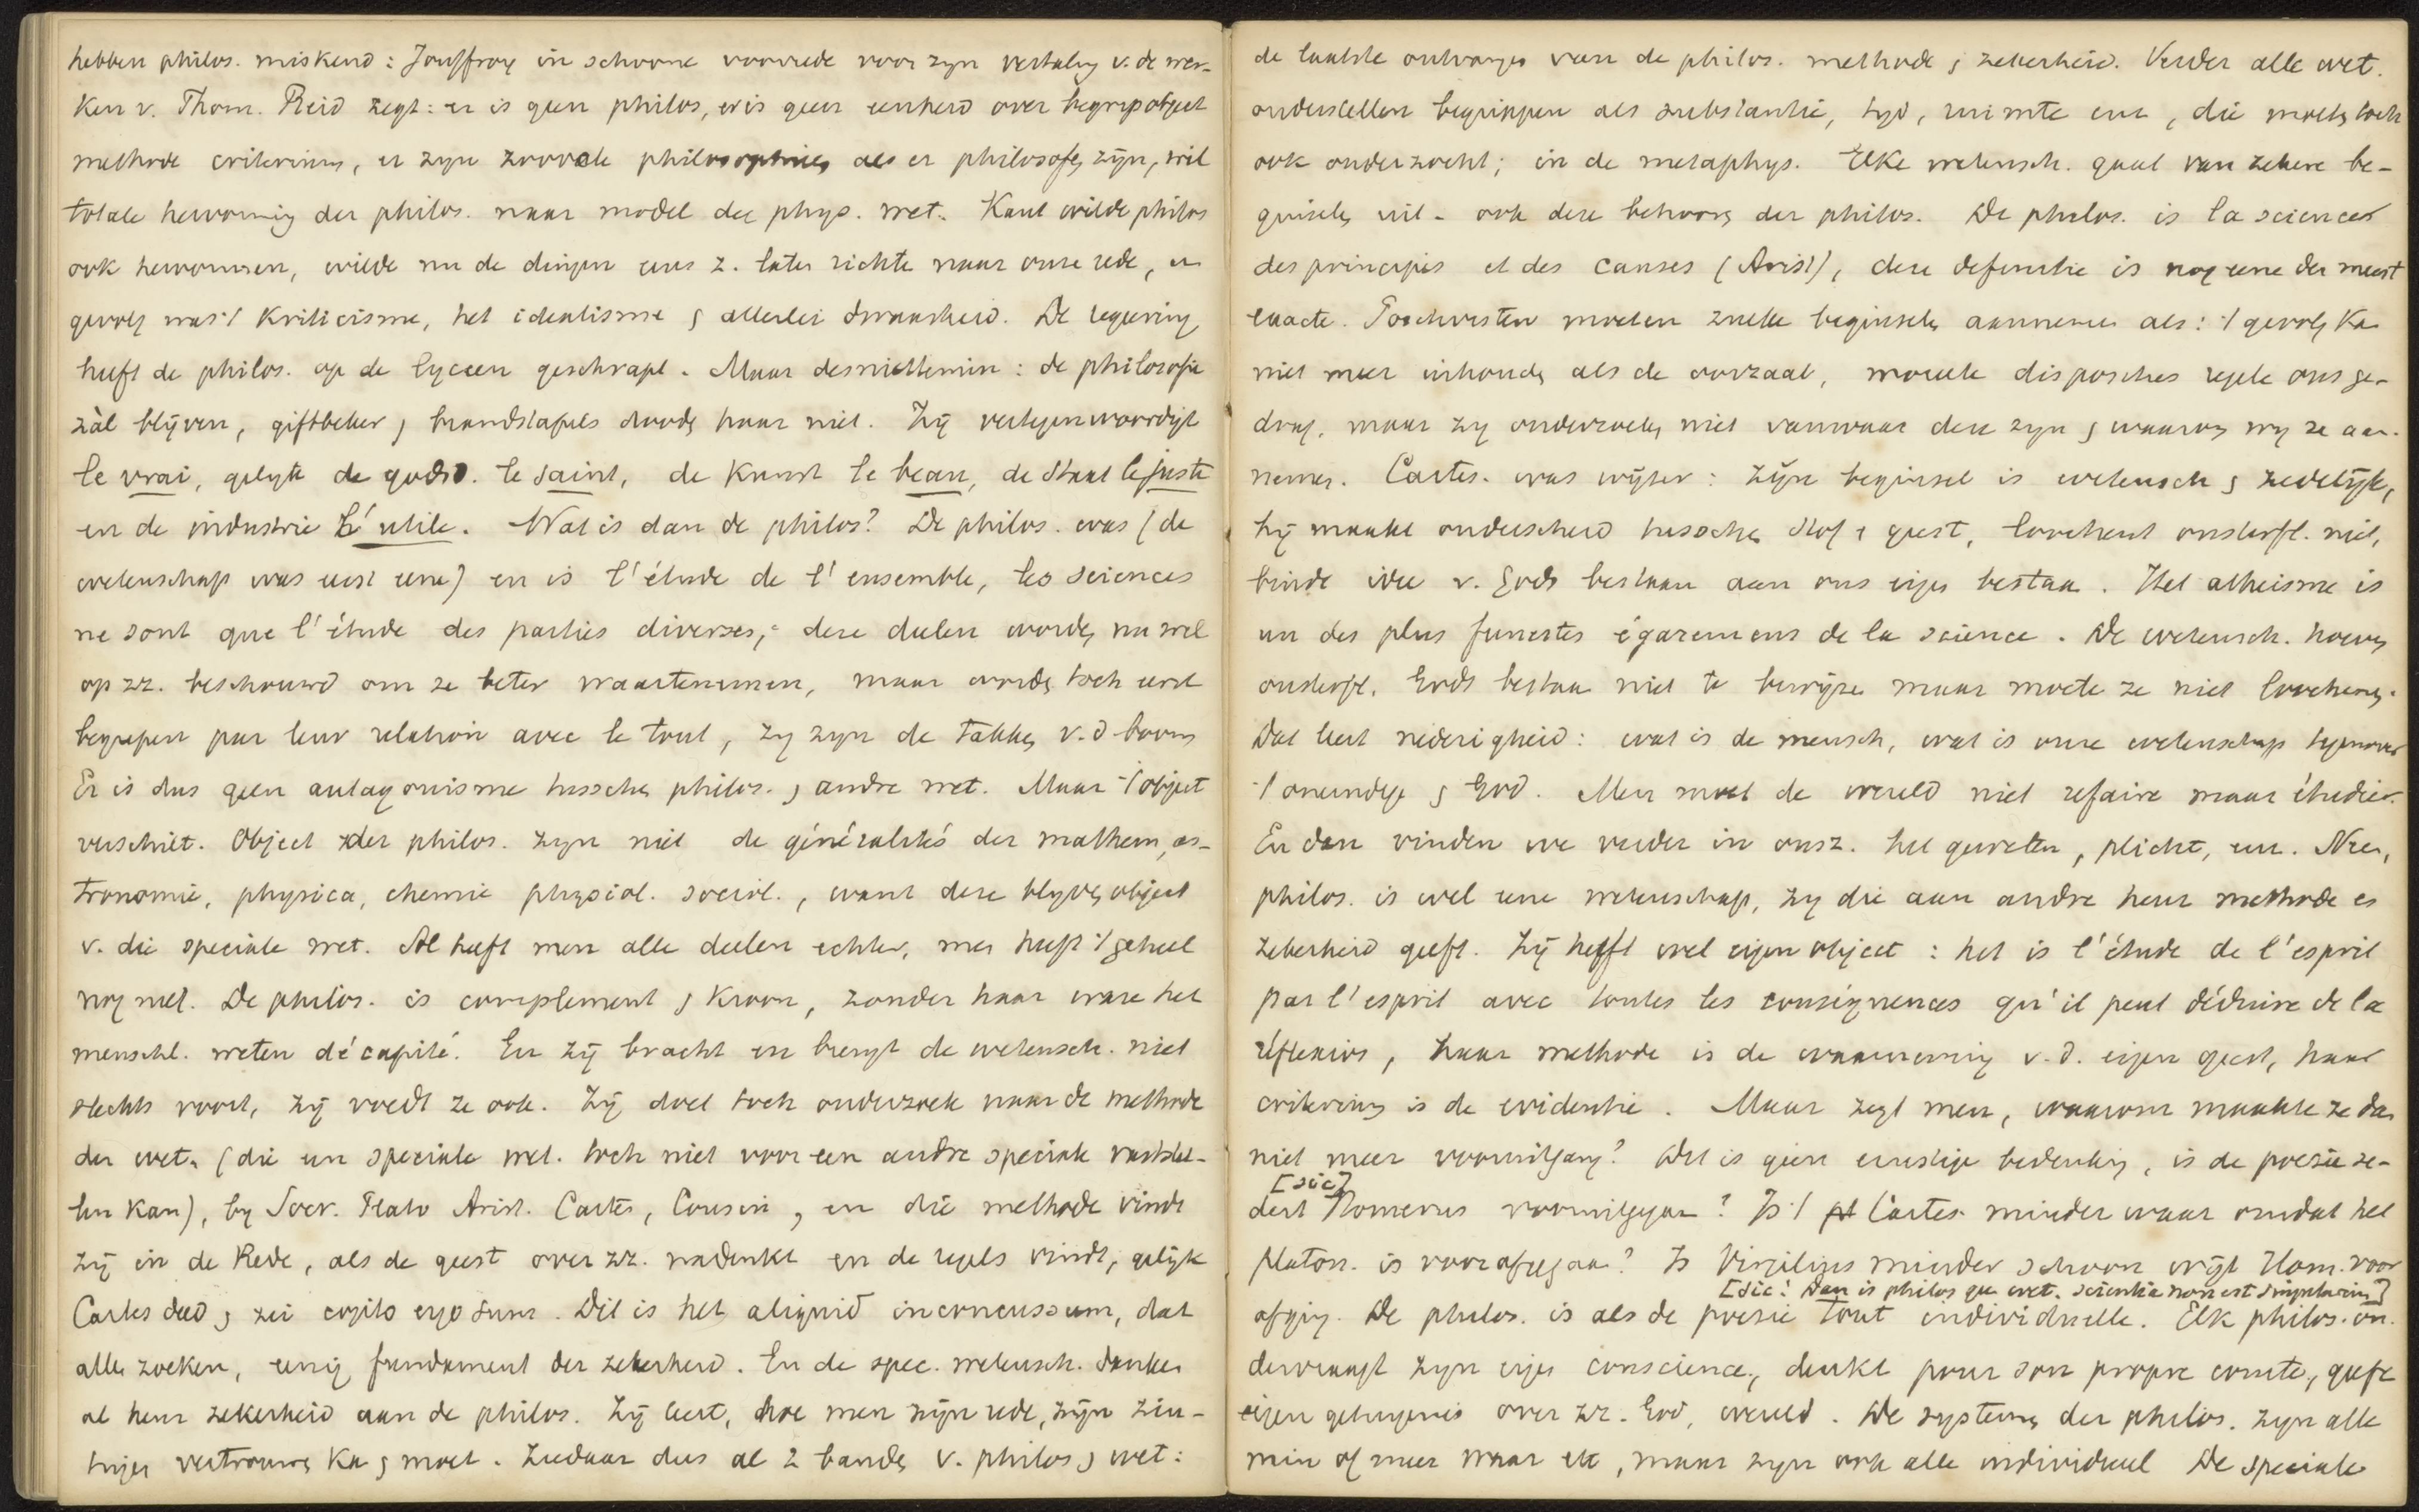 hebben philos. miskend: Jouffroy in schoone voorrede voor zyn vertaling v. de wer-
ken v. Thom. Reid zegt: er is geen philos, er is geen eenheid over begrip object
methode criterium, er zyn zooveele philosophies als er philosofen zijn, wil
totale hervorming der philos. naar model der phys. wet. Kant wilde philos
ook hervormen, wilde nu de dingen eens z. laten richte naar onze rede, en
gevolg was 't Kriticisme, het idealisme & allerlei dwaasheid. De regeering
heeft de philos. op de lyceen geschrapt. Maar desniettemin: de philosofie
zàl blijven, giftbeker & brandstapels dooden haar niet. Zij vertegenwoordigt
le vrai, gelijk de godsd. le saint, de kunst le beau, de staat le juste
en de industrie l'utile. Wat is dan de philos? De philos. was (de
wetenschap was eerst eene) en is l'étude de l'ensemble, les sciences
ne sont que l'étude des parties diverses, deze deelen worden nu wel
op zz. beschouwd om ze beter waartenemen, maar worden toch eerst
begrepen par leur relation avec le tout, zy zyn de takken v. d. boom
Er is dus geen antagonisme tusschen philos. & andre wet. Maar 't object
verschilt. Object der philos. zyn niet de généralités der mathem, as-
tronomie, physica, chemie physiol. sociol., want deze blyven object
v. die speciale wet. Al heeft men alle deelen echter, men heeft 't geheel
nog niet. De philos. is complement & kroon, zonder haar ware het
menschl. weten décapité. En zij bracht en brengt de wetensch. niet
slechts voort, zij voedt ze ook. Zij doet toch onderzoek naar de methode
der wet. (die een speciale wet. toch niet voor een andre speciale vaststel-
len kan), by Socr. Plato Arist. Cartes, Cousin, en die methode vindt
zij in de Rede, als de geest over zz. nadenkt en de regels vindt, gelijk
Cartes deed & zei cogito ergo sum. Dit is het aliquid inconcussum, dat
allen zoeken, eenig fundament der zekerheid. En de spec. wetensch. danken
al heur zekerheid aan de philos. Zij leert, hoe men zijn rede, zijn zin-
tuigen vertrouwen kan & moet. Ziedaar dus al 2 banden v. philos & wet:
de laatste ontvangen van de philos. methode & zekerheid. Verder alle wet.
onderstellen begrippen als substantie, tyd, ruimte enz, die moeten toch
ook onderzocht; in de metaphys. Elke wetensch. gaat van zekere be-
ginselen uit - ook deze behooren der philos. De philos. is la sciences
des principes et des causes (Arist), deze definitie is nog eene der meest
exacte. Positivisten moeten zulke beginselen aannemen als: 't gevolg kan
niet meer inhouden als de oorzaak, moreele disposities regele ons ge-
drag. maar zy onderzoeken niet vanwaar deze zyn & waarom wy ze aan-
nemen. Cartes. was wijzer: zijn beginsel is wetensch & zedelijk,
hij maakt onderscheid tusschen stof & geest, loochent onsterfl. niet,
bindt idee v. Gods bestaan aan ons eigen bestaan. Het atheisme is
un des plus funestes égaremens de la science. De wetensch. hoeven
onsterfl. Gods bestaan niet te bewijzen maar moeten ze niet loochenen.
Dat leert nederigheid: wat is de mensch, wat is onze wetenschap tegenover
't oneindige & God. Men moet de wereld niet refaire maar étudier.
En dan vinden we verder in onsz. het geweten, plicht, enz. Neen,
philos. is wel eene wetenschap, zy die aan andre heur methode en
zekerheid geeft. Zij heeft wel eigen object: het is l'étude de l'esprit
par l'esprit avec toutes les conséquences qu'il peut déduire de la
réflexion, haar methode is de waarneming v. d. eigen geest, haar
criterium is de evidentie. Maar zegt men, waarom maakte ze dan
niet meer vooruitgang? Dit is geen ernstige bedenking, is de poesie se-
[sic]
dert Homerus vooruitgegaan? Is 't Cartes. minder waar omdat het
platon. is voorafgegaan? Is Virgilius minder schoon wijl Hom. voor
[sic! Dan is philos gee wet. scientia non est singularium]
afging. De philos. is als de poesie tout individuelle. Elk philos. on-
dervraagt zyn eigen conscience, denkt pour son propre comte, geeft
eigen getuigenis over zz. God, wereld. De systemen der philos. zyn alle
min of meer waar etc, maar zyn ook alle individueel De speciale